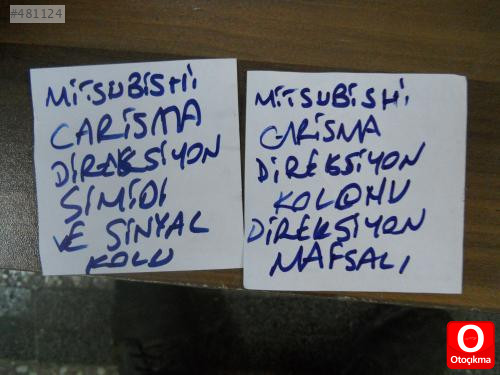 #481124
MİTSUBİSHİ
CARİSMA
DİREKSİYON
SİMİDİ
VE SİNYAL
KOLU
MİTSUBİSHİ
CARİSMA
DİREKSİYON
KOLONU
DİREKSİYON
MAFSALI
Otoçıkma